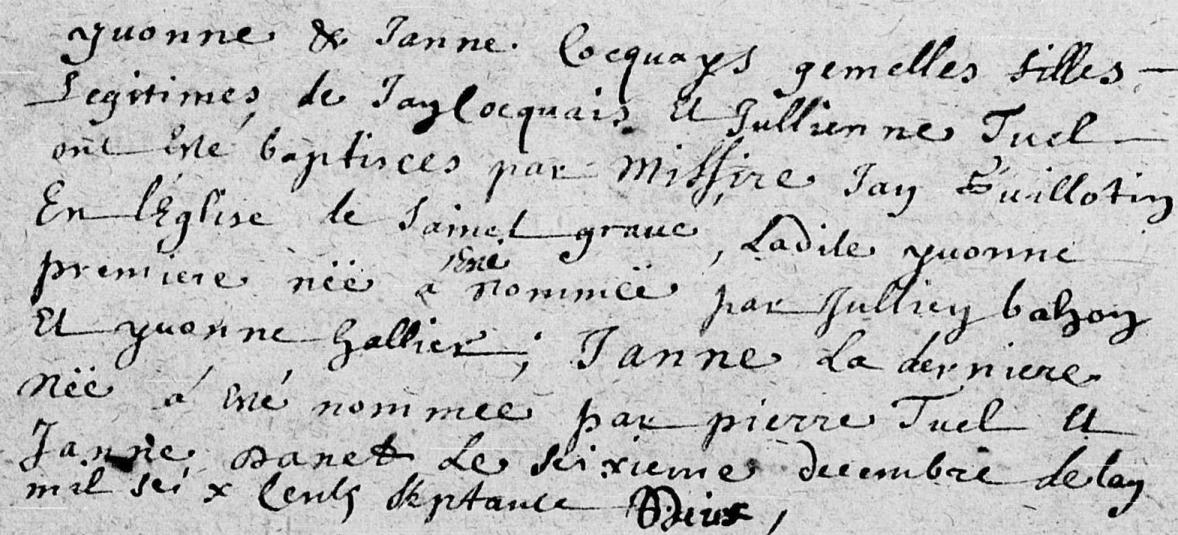 yvonne & Janne Cocquays gemelles filles
Legitimes de Jan Cocquais Et Jullienne Tuel
ont esté baptisees par Missire Jan Guillotin
En l'Église de Sainct grave, Ladite yvonne
premiere néë a esté nomméë par Jullien bahon
Et yvonne hallier; Janne La derniere
Néë á esté nommee par pierre Tuel Et
Janne Danet Le seixieme decembre de lan
mil seix cents septante